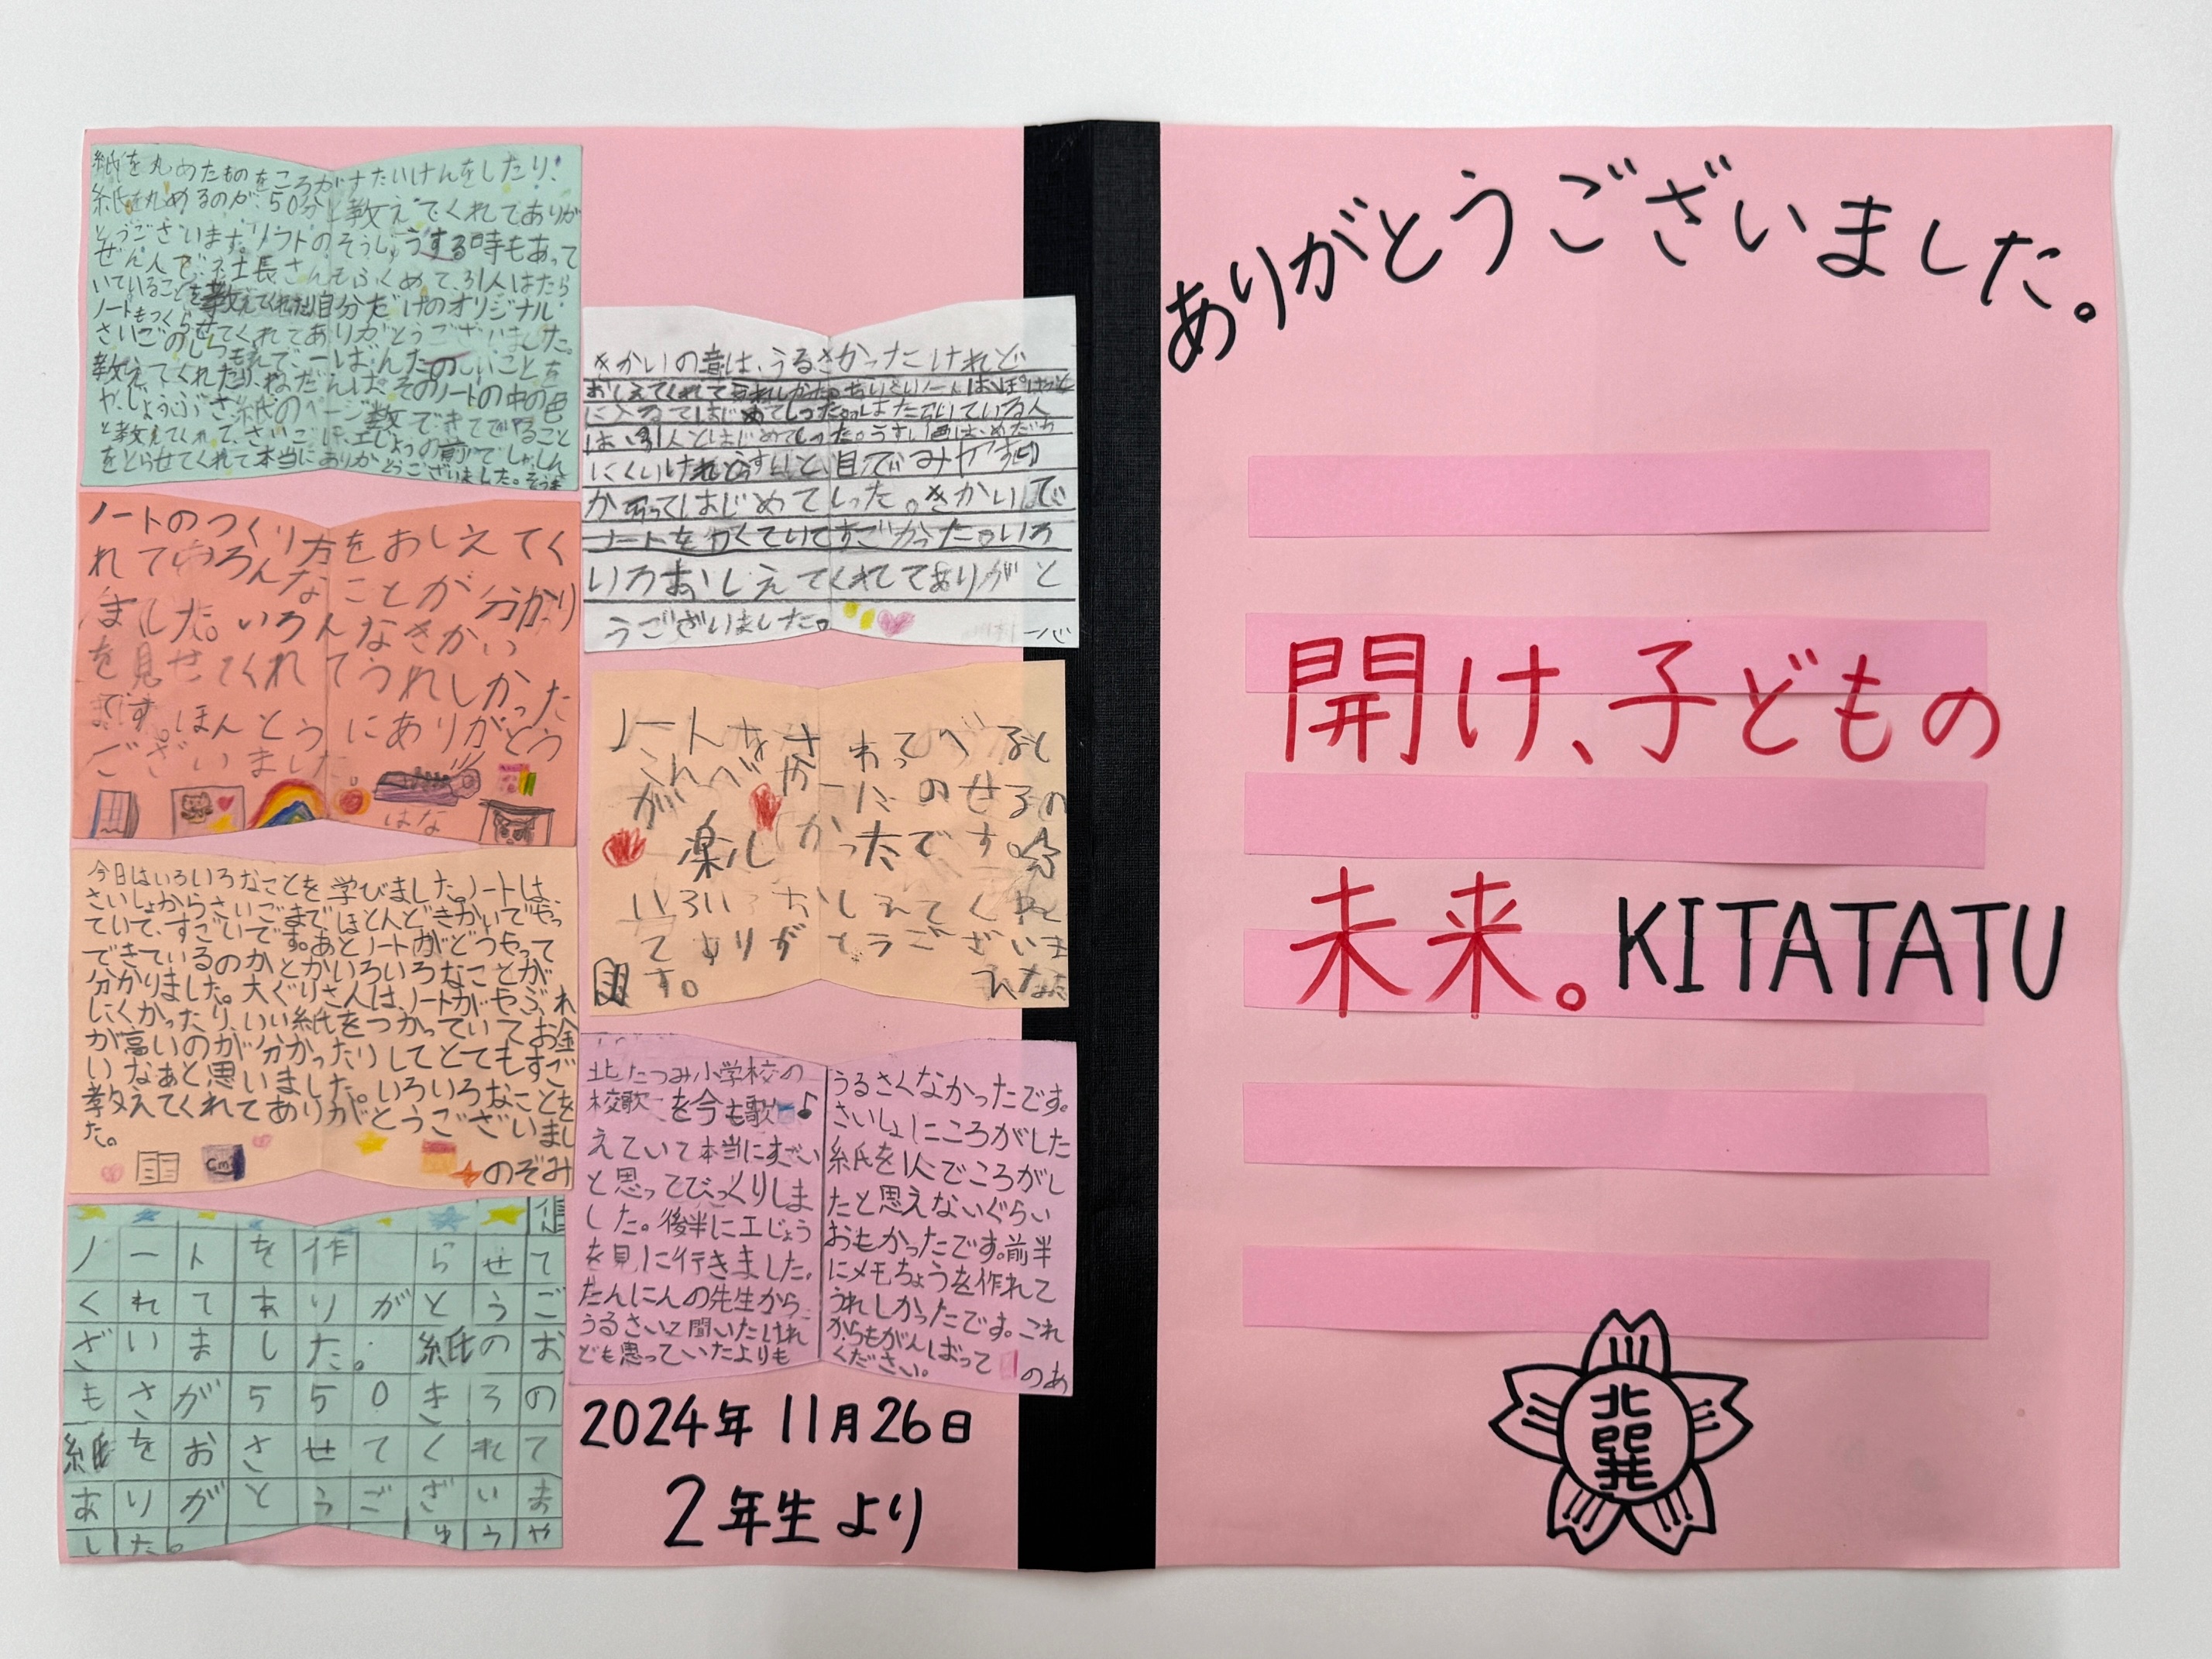 紙を丸めたものをころがすたいけんをしたり、
紙を丸めるのが、50分と教えてくれてありが
とうございます。リフトのそうじゅうする時もあって
ぜん人で、社長さんもふくめて、31人はたら
いていることを教えてくれたり自分だけのオリジナル
ノートもつくらせてくれてありがとうございました。
さいごのしつもんで一ばんたのしいことを
教えてくれたり、ねだんは、そのノートの中の色
や、じょうぶさ、紙のページ数できてでやること
と教えてくれて、さいごに、工じょうの前でしゃしん
をとらせてくれて本当にありがとうございました。そうま
ノートのつくり方をおしえてく
れていろんなことが分かり
ました。いろんなきかい
を見せてくれてうれしかった
です。ほんとうにありがとう
ございました。
はな
今日はいろいろなことを学びました。ノートは、
さいしょからさいごまでほとんどきかいでやっ
ていて、すごいです。あとノートがどうやって
できているのかとかいろいろなことが
分かりました。大ぐりさん人は、ノートがやぶれ
にくかったり、いい紙をつかっていてお金
が高いのが分かったりしてとてもすご
いなあと思いました。いろいろなことを
教えてくれてありがとうございまし
た。
のぞみ
ノートを作らせて
くれてありがとうご
ざいました。紙のお
もさが550きろの
紙をおさせてくれて
ありがとうございま
した。ゆうや
きかいの音は、うるさかったけれど
おしえてくれてうれしかった。ちいさいノートはぽけっと
に入るてはじめてしった。はたらいている人
は31人とはじめてしった。うすい
にくいけれどうすいと、目で
かってはじめてしった。きかいで
ノートをかくていてすごかった。いろ
いろおしえてくれてありがと
うございました。
一心
ノートをさわってべると
これべを
がかーたのせるの
楽しかったです。
いろいろおしえてくれ
てありがとうございま
す。
北たつみ小学校の
校歌を今も歌
えていて本当にすごい
と思ってびっくりしま
した。後半に工じょう
を見に行きました。
たんにんの先生から
うるさいと聞いたけれ
ども思っていたよりも
うるさくなかったです。
さいしょにころがした
紙を1人でころがし
たと思えないぐらい
おもかったです。前半
にメモちょうを作れて
うれしかったです。これ
からもがんばって
ください。
のあ
2024年 11月26日
2年生より
ありがとうございました。
開け、子どもの
未来。KITATATU
北
巽